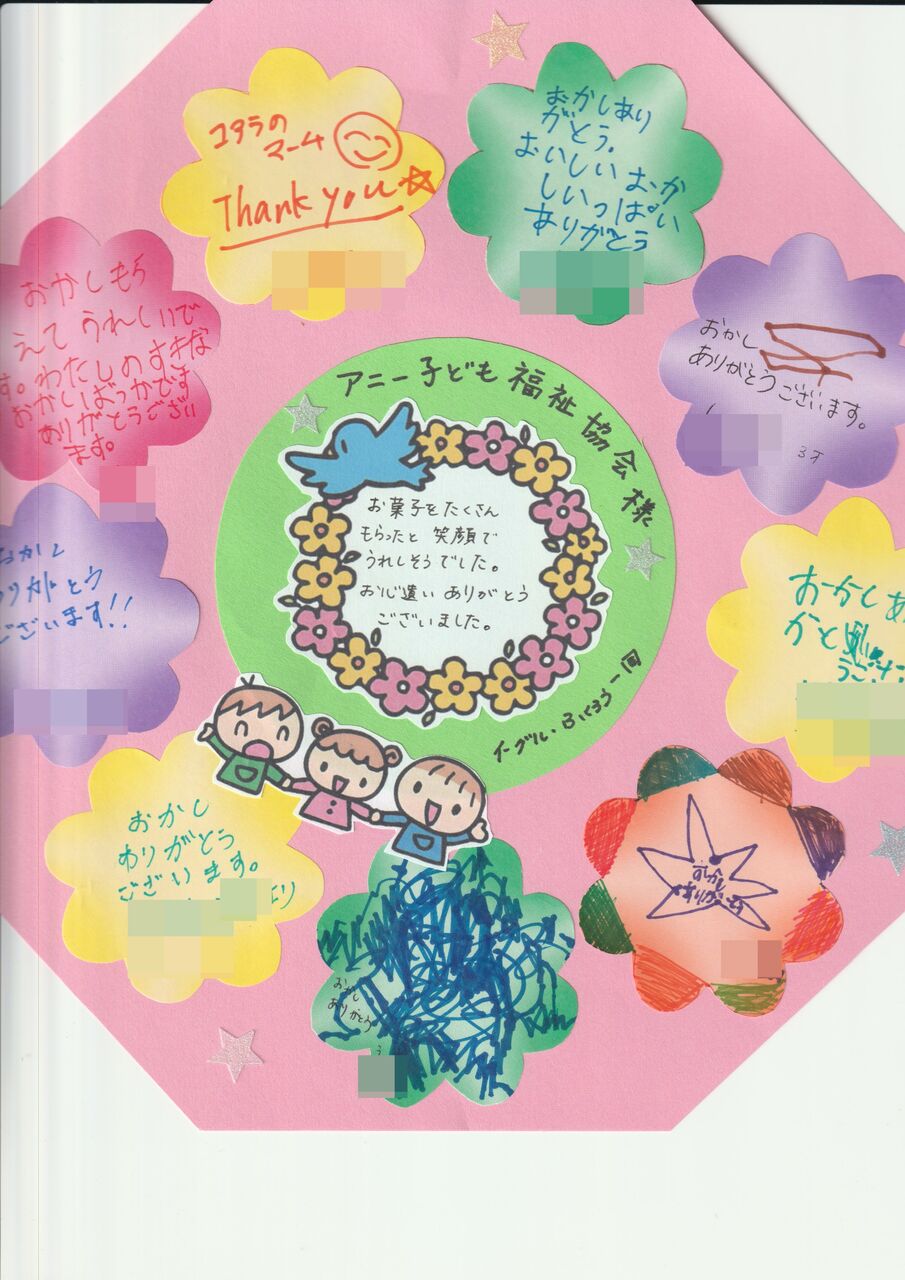 コタラの
マーム
Thank you
おかしあり
がとう。
おいしい おか
しいっぱい
ありがとう
おかしもら
えて うれしいで
す。わたしのすきな
おかしばっかです
ありがとうござい
ます。
おかし
ありがとうございます。
3才
アニー子ども福祉協会様
お菓子をたくさん
もらったと 笑顔で
うれしそうでした。
お心遣い ありがとう
ございました。
イーグル・ふくろう一同
おかし
ありがとう
ございます!!
おかしあ
がと
うござ
おかし
ありがとう
ございます。
より
おかし
ありがとう